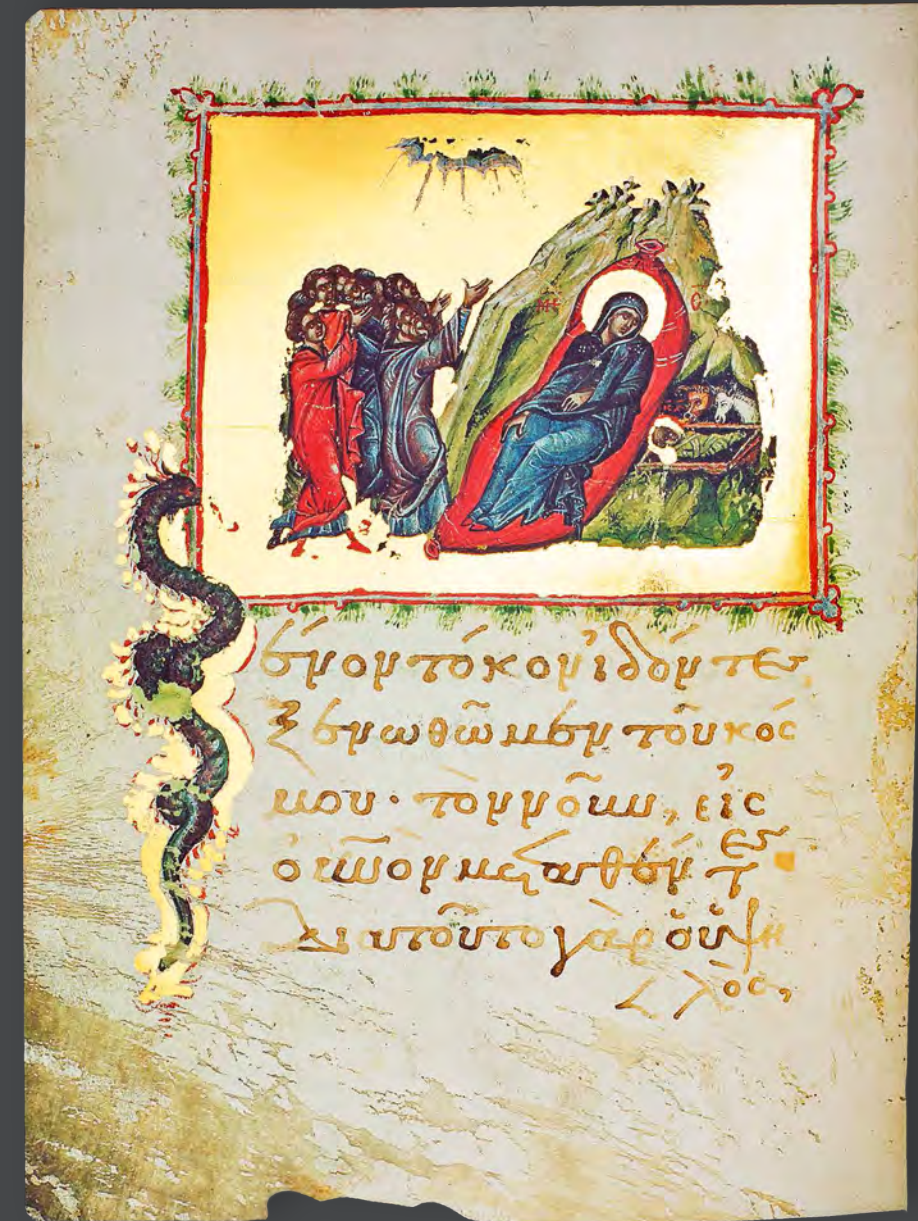 ΜΡ
Ξένον τόκον ἰδόντες
ξενωθῶμεν τοῦ κόσ
μου· τὸν νοῦν, εἰς
οὐνὸν μεταθέντες
Διατοῦτο γὰρ ὁ ὑψη
λὸς,